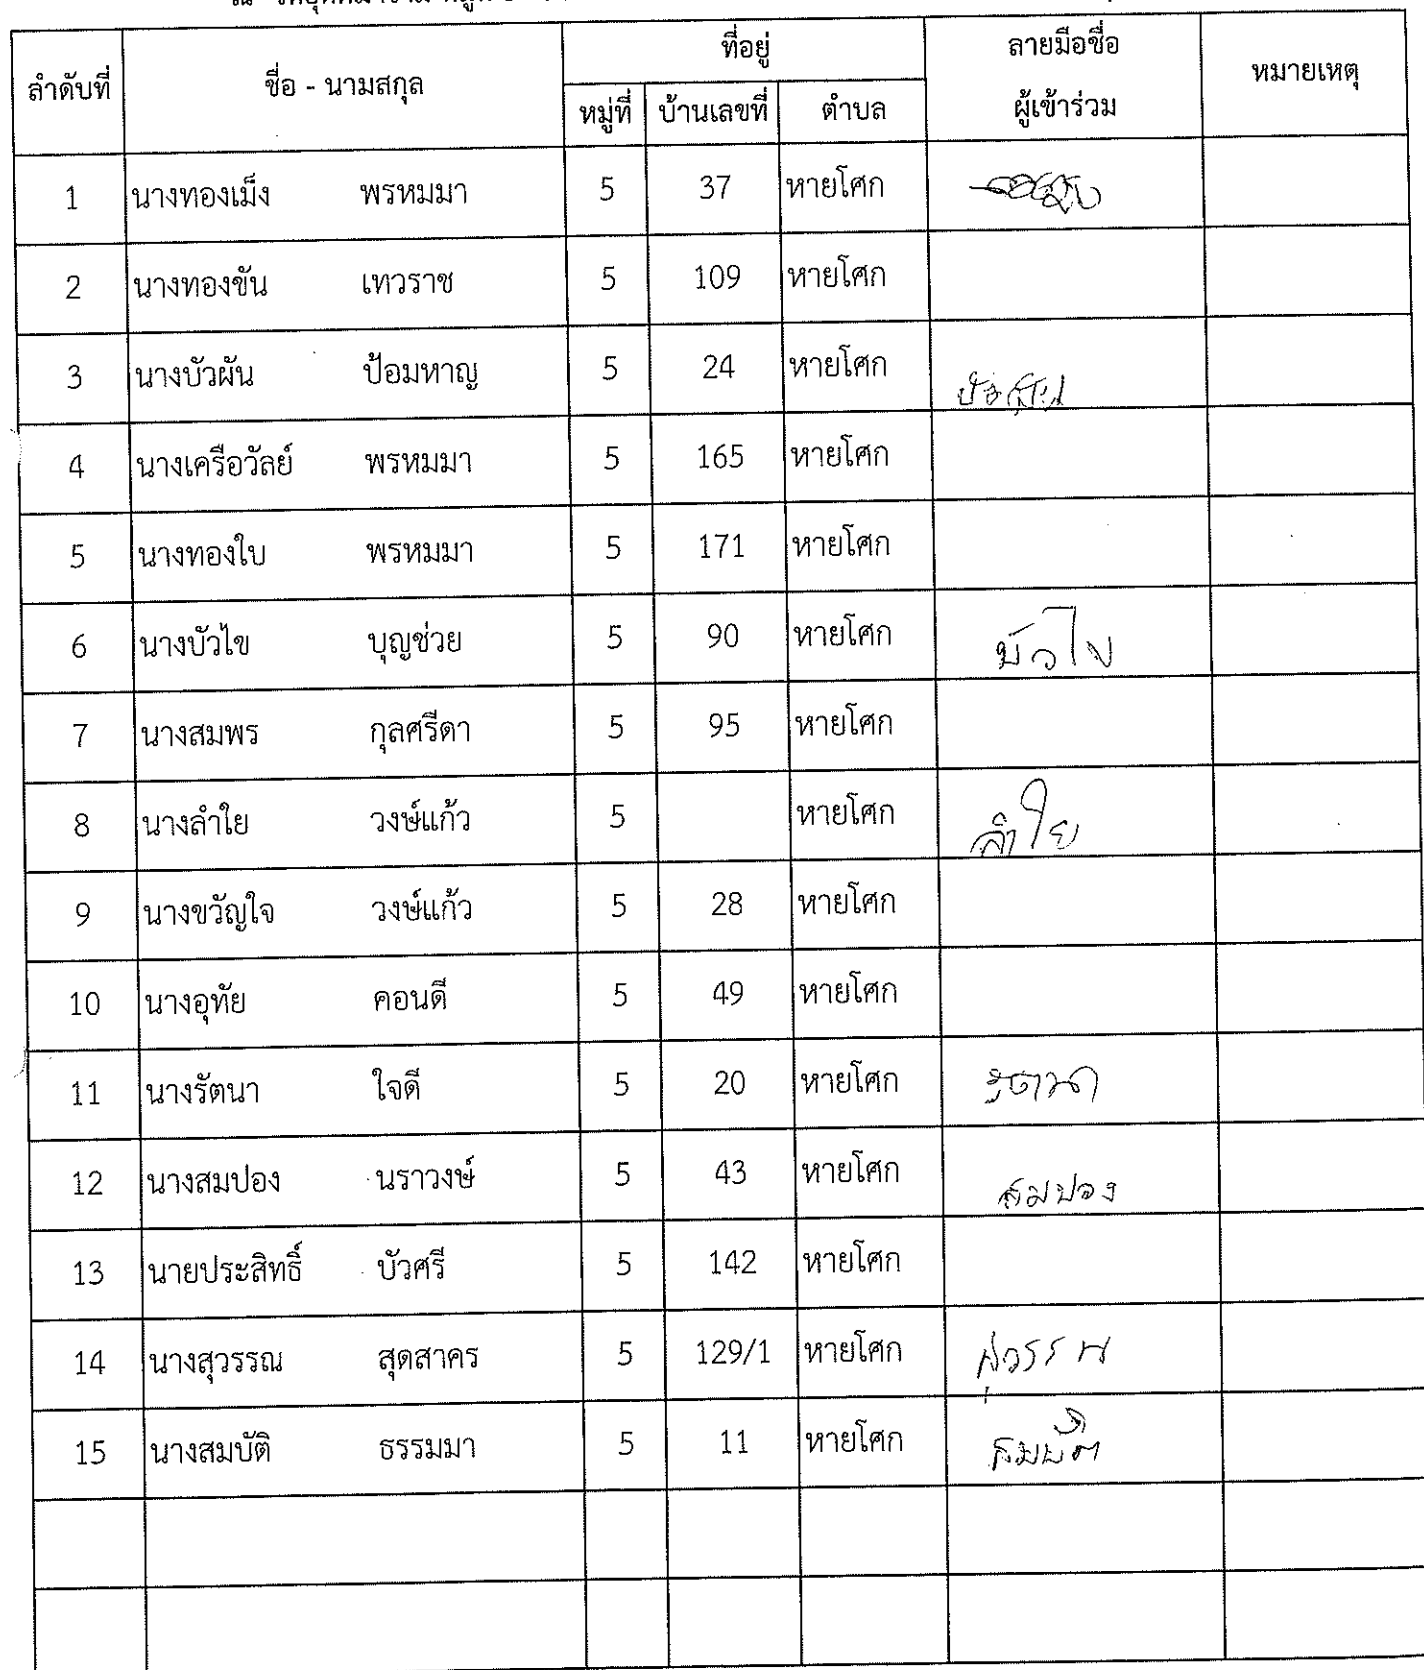 ที่อยู่ ลายมือชื่อ
ลำดับที่ ชื่อ - นามสกุล หมายเหตุ
หมู่ที่ บ้านเลขที่ ตำบล ผู้เข้าร่วม
1 นางทองเม็ง พรหมมา 5 37 หายโศก
2 นางทองขัน เทวราช 5 109 หายโศก
3 นางบัวผัน ป้อมหาญ 5 24 หายโศก
4 นางเครือวัลย์ พรหมมา 5 165 หายโศก
5 นางทองใบ พรหมมา 5 171 หายโศก
6 นางบัวไข บุญช่วย 5 90 หายโศก บัวไข
7 นางสมพร กุลศรีดา 5 95 หายโศก
8 นางลำใย วงษ์แก้ว 5 หายโศก ลำใย
9 นางขวัญใจ วงษ์แก้ว 5 28 หายโศก
10 นางอุทัย คอนดี 5 49 หายโศก
11 นางรัตนา ใจดี 5 20 หายโศก รัตนา
12 นางสมปอง นราวงษ์ 5 43 หายโศก สมปอง
13 นายประสิทธิ์ บัวศรี 5 142 หายโศก
14 นางสุวรรณ สุดสาคร 5 129/1 หายโศก สุวรรณ
15 นางสมบัติ ธรรมมา 5 11 หายโศก สมบัติ